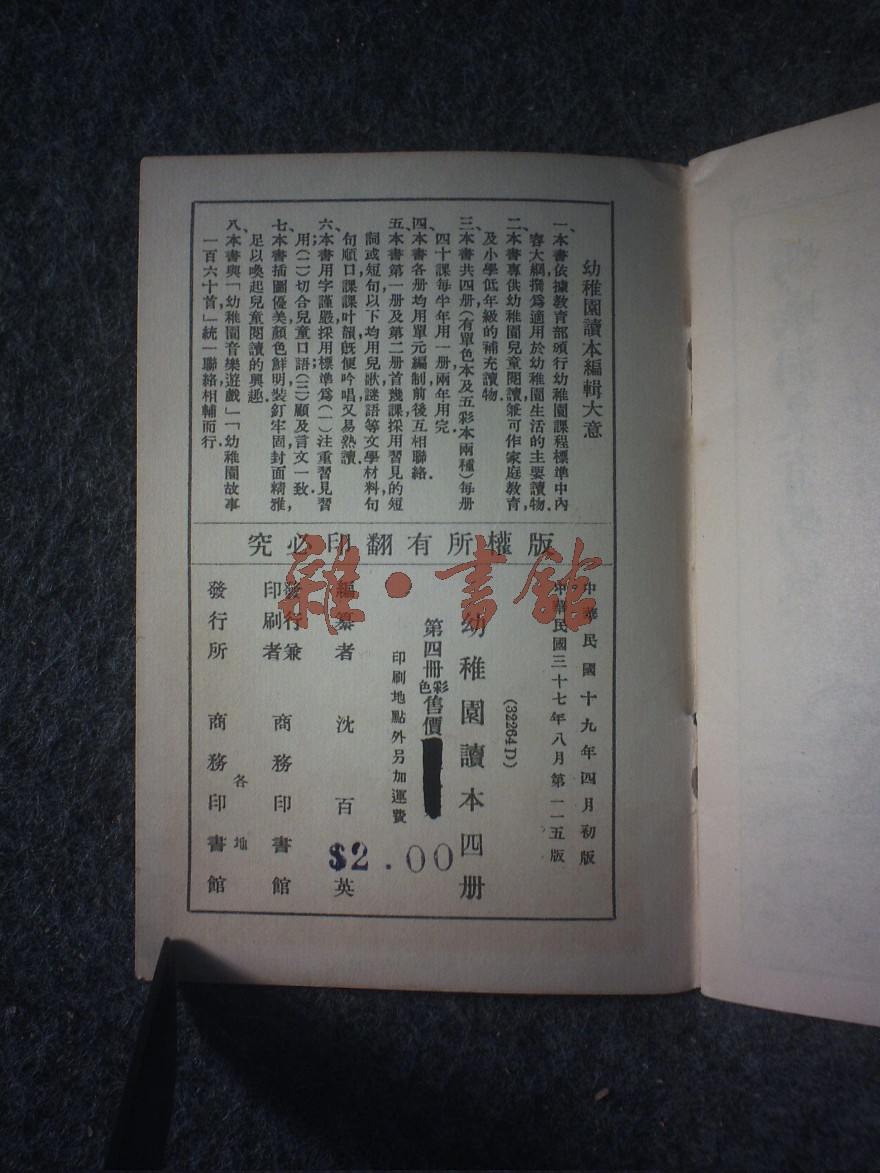 幼稚園讀本編輯大意
一、本書依據教育部頒行幼稚園課程標準中內
容大綱撰爲適用於幼稚園生活的主要讀物.
二、本書專供幼稚園兒童閱讀兼可作家庭教育,
及小學低年級的補充讀物.
三、本書共四册(有單色本及五彩本兩種)每册
四十課每半年用一册兩年用完.
四、本書各册均用單元編制前後互相聯絡.
五、本書第一册及第二册首幾課採用習見的短
詞或短句以下均用兒歌謎語等文學材料句
句順口課課叶韻旣便吟唱又易熟讀.
六、本書用字謹嚴採用標準爲(一)注重習見習
用;(二)切合兒童口語;(三)顧及言文一致.
七、本書插圖優美顏色鮮明裝釘牢固封面精雅,
足以喚起兒童閱讀的興趣.
八、本書與「幼稚園音樂遊戲」「幼稚園故事
一百六十首」統一聯絡相輔而行.
版權所有翻印必究
中華民國十九年四月初版
中華民國三十七年八月第一一五版
(32264D)
幼稚園讀本四册
第四冊彩色售價
$2.00
印刷地點外另加運費
編纂者 沈百英
發行兼印刷者 商務印書館
各地
發行所 商務印書館
雜·書館